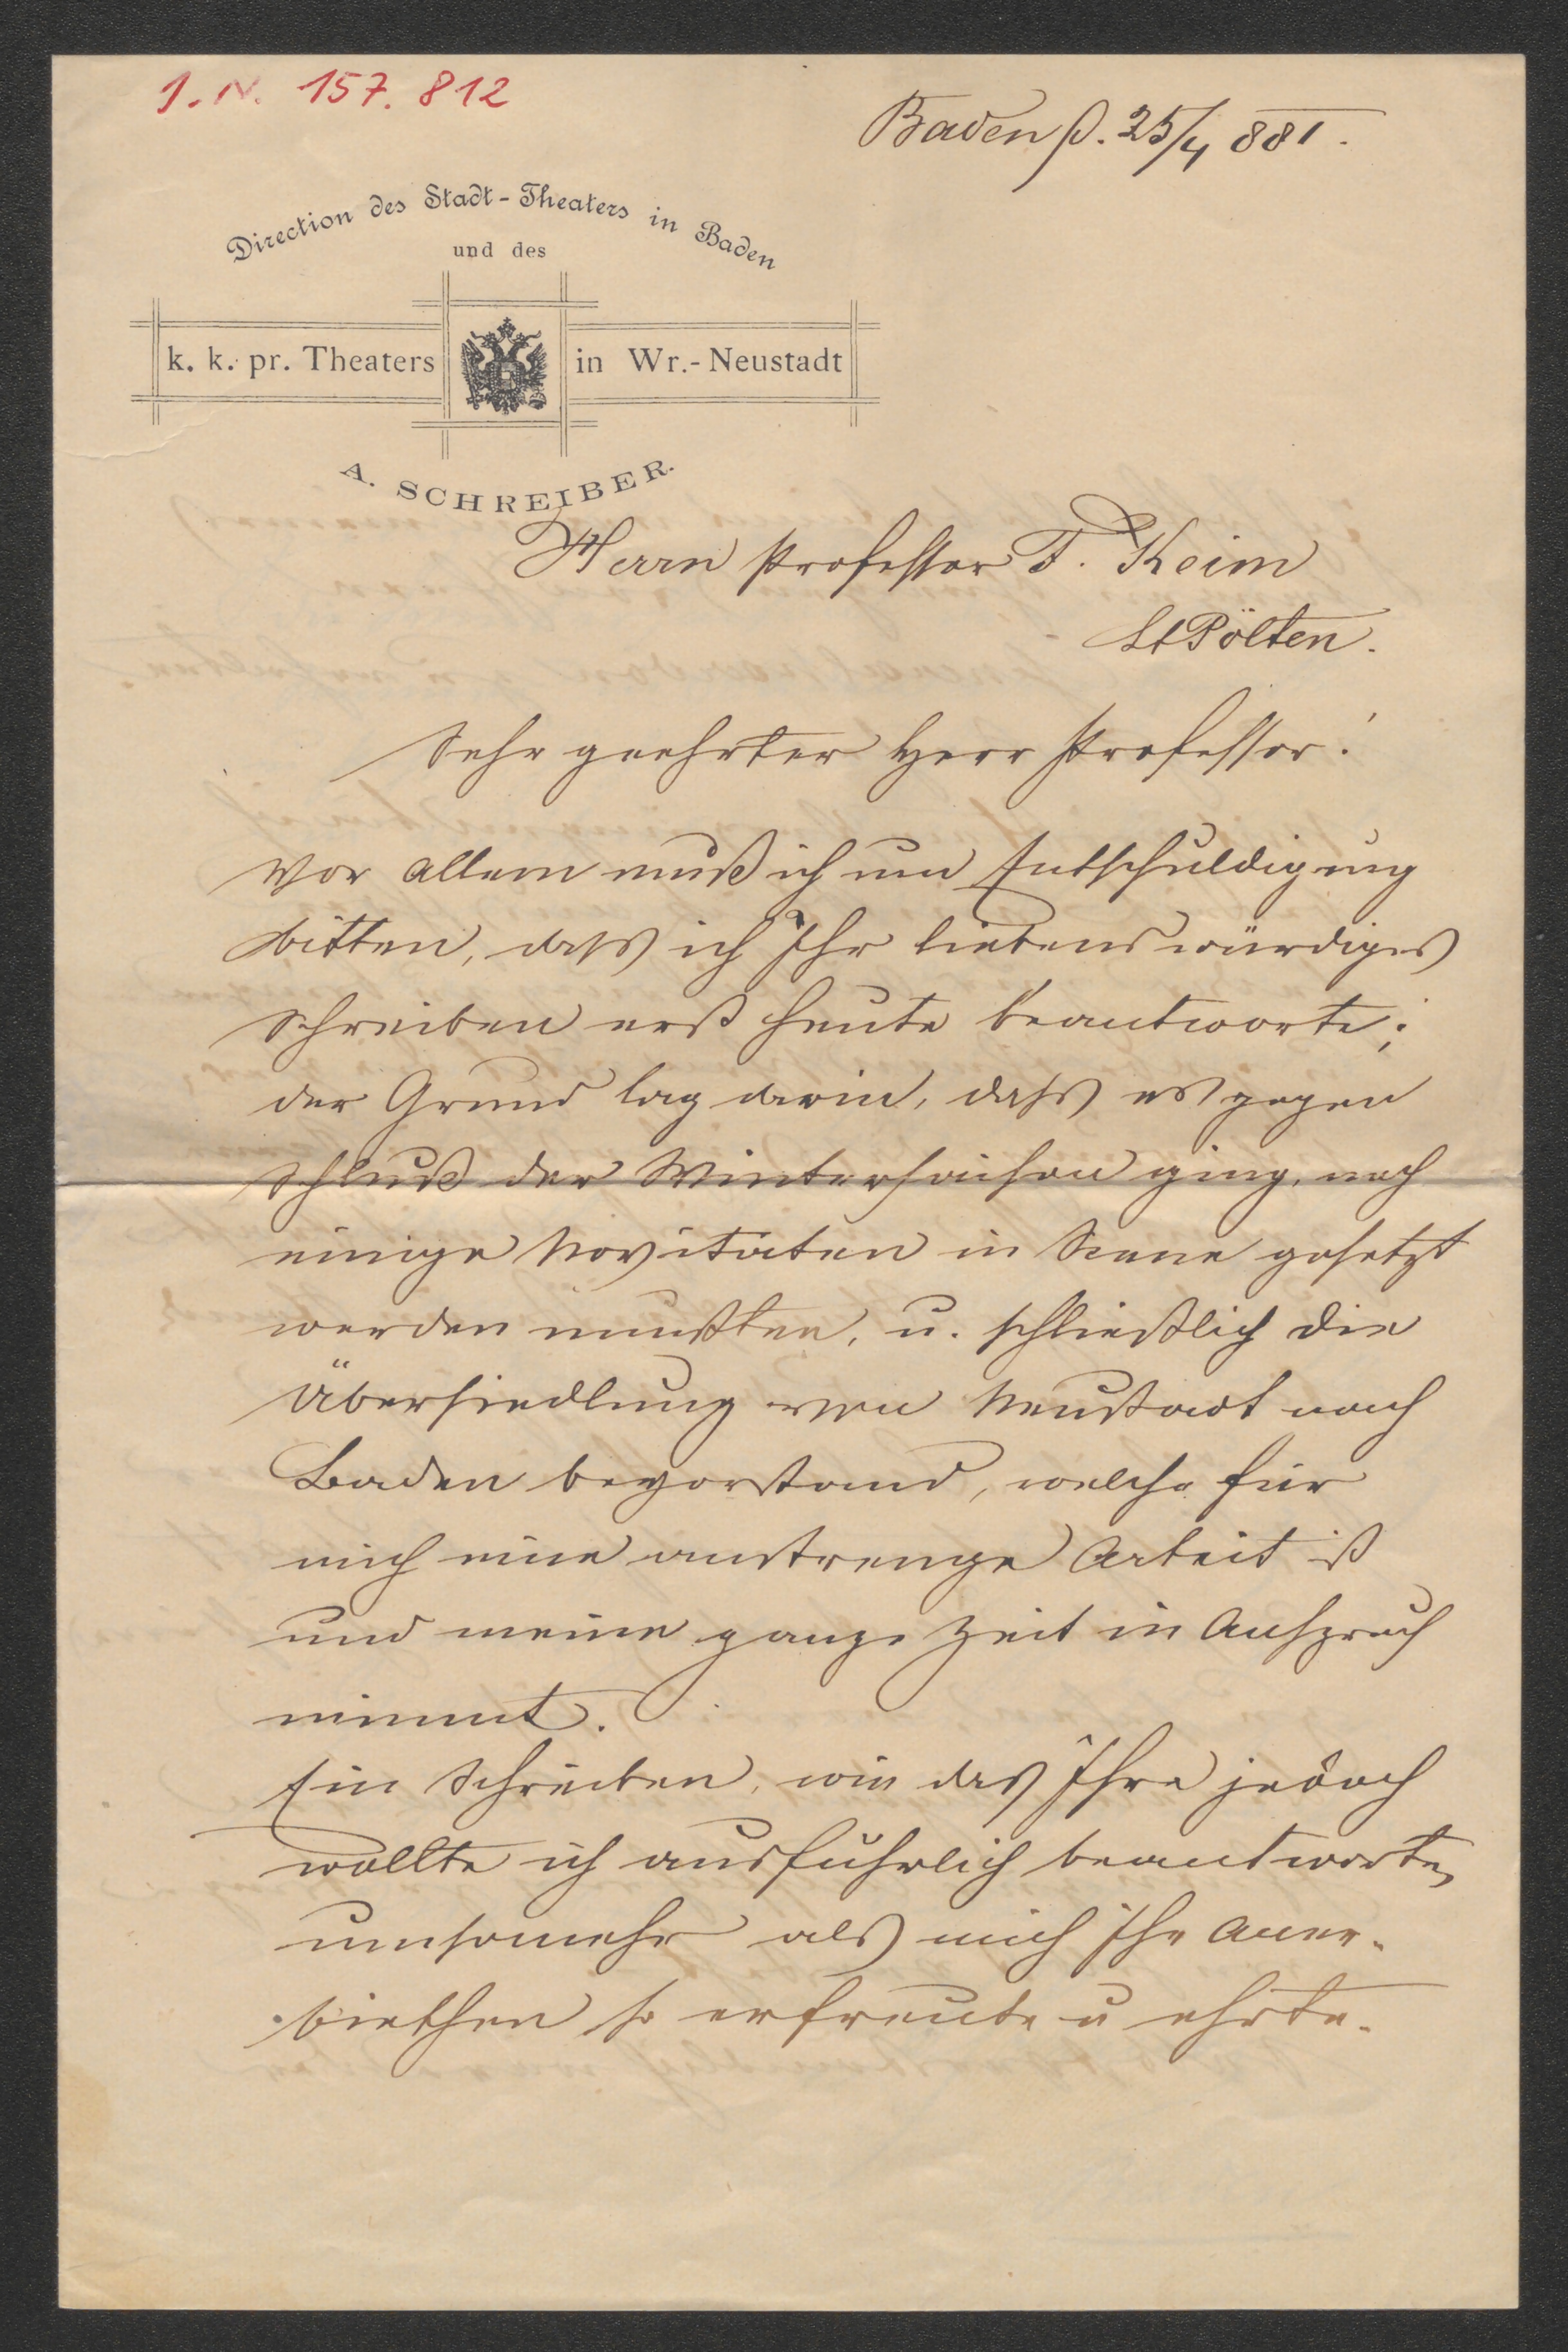 I. N. 157.812
Baden d. 25/4 881.
Direction des Stadt-Theaters in Baden
und des
k. k. pr. Theaters in Wr.-Neustadt
A. SCHREIBER.
Herrn Professor F. Keim
St Pölten.
Sehr geehrter Herr Professor!
Vor allem muß ich um Entschuldigung
bitten, dass ich Ihr liebenswürdiges
Schreiben erst heute beantworte;
der Grund lag darin, dass es gegen
Schluß der Wintersaison ging, noch
einige Novitäten in Scene gesetzt
werden mussten, u. schließlich die
Übersiedlung von Neustadt nach
Baden bevorstand, welche für
mich eine anstrenge Arbeit ist
und meine ganze Zeit in Anspruch
nimmt.
Ein Schreiben, wie das Ihre jedoch
wollte ich ausführlich beantworten
umsomehr als mich Ihr Aner-
biethen so erfreute u ehrte.